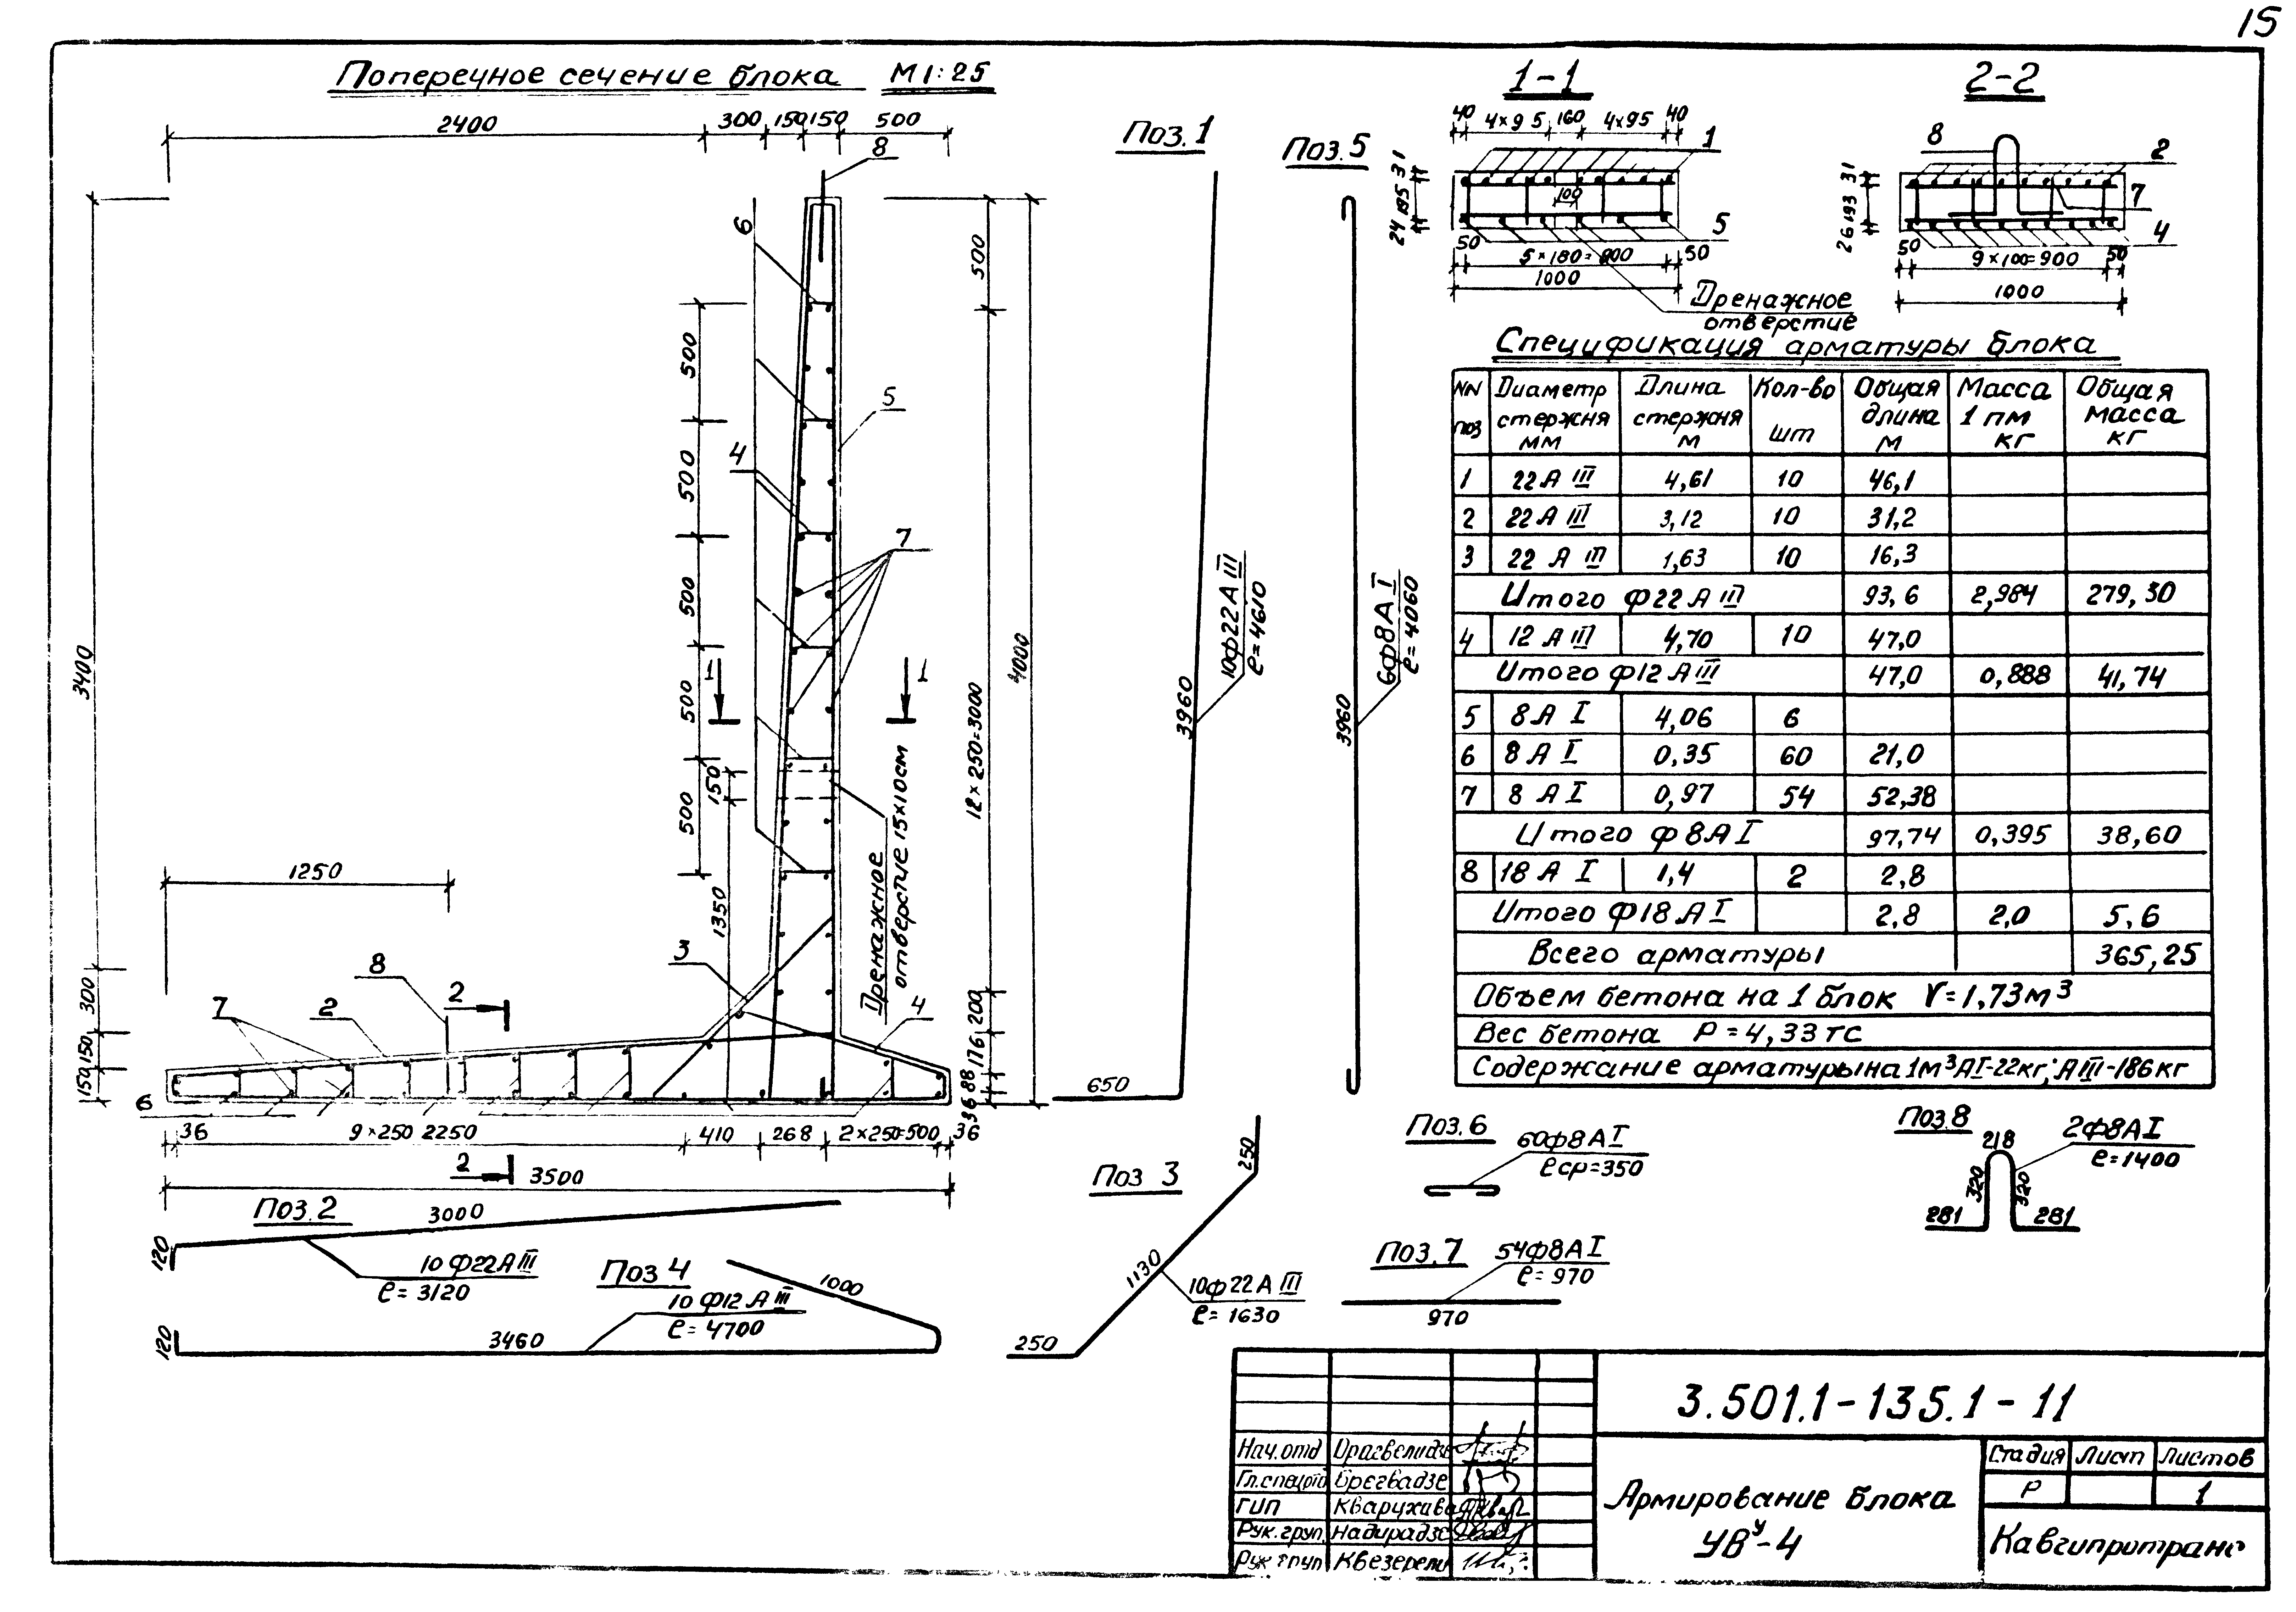 15
Поперечное сечение блока М 1:25
2400 300 150 150 500
8
6
500
500
500
500
500
150
1350
3400
300
150
150
1250
4
5
7
1 1
500
12×250=3000
4000
200
176
88
36
Дренажное
отверстие 15×10см
3
4
7 2 8 2
6
36 9×250 2250 410 268 2×250=500 36
2 3500
Поз.1
3960
10ф22АIII
ℓ=4610
650
Поз.5
3960
6ф8АI
ℓ=4060
1-1
40 4×95 160 4×95 40
1
31
195
24
100
5
50 5×180=900 50
1000
Дренажное
отверстие
2-2
8
2
31
193
26
7
4
50 9×100=900 50
1000
Спецификация арматуры блока
NN поз Диаметр стержня мм Длина стержня м Кол-во шт Общая длина м Масса 1 пм кг Общая масса кг
1 22 А III 4,61 10 46,1
2 22 А III 3,12 10 31,2
3 22 А III 1,63 10 16,3
Итого ф22 А III 93,6 2,984 279,30
4 12 А III 4,70 10 47,0
Итого ф12 А III 47,0 0,888 41,74
5 8 А I 4,06 6
6 8 А I 0,35 60 21,0
7 8 А I 0,97 54 52,38
Итого ф 8 А I 97,74 0,395 38,60
8 18 А I 1,4 2 2,8
Итого ф18 А I 2,8 2,0 5,6
Всего арматуры 365,25
Объем бетона на 1 блок V=1,73м³
Вес бетона Р=4,33тс
Содержание арматуры на 1м³ АI-22кг; АIII-186кг
Поз.2
3000
120
10 ф22АIII
ℓ=3120
Поз 4
1000
10 ф12 А III
ℓ=4700
120
3460
Поз 3
250
1130
10ф22А III
ℓ=1630
250
Поз.6
60ф8АI
ℓср=350
Поз.7
54ф8АI
ℓ=970
970
Поз.8
218
2ф8АI
ℓ=1400
320 320
281 281
3.501.1-135.1-11
Нач.отд
Гл.спец.отд
ГИП
Рук.груп. Надирадзе
Рук груп Квезерели
Армирование блока
УВу-4
Стадия Лист Листов
Р 1
Кавгипротранс